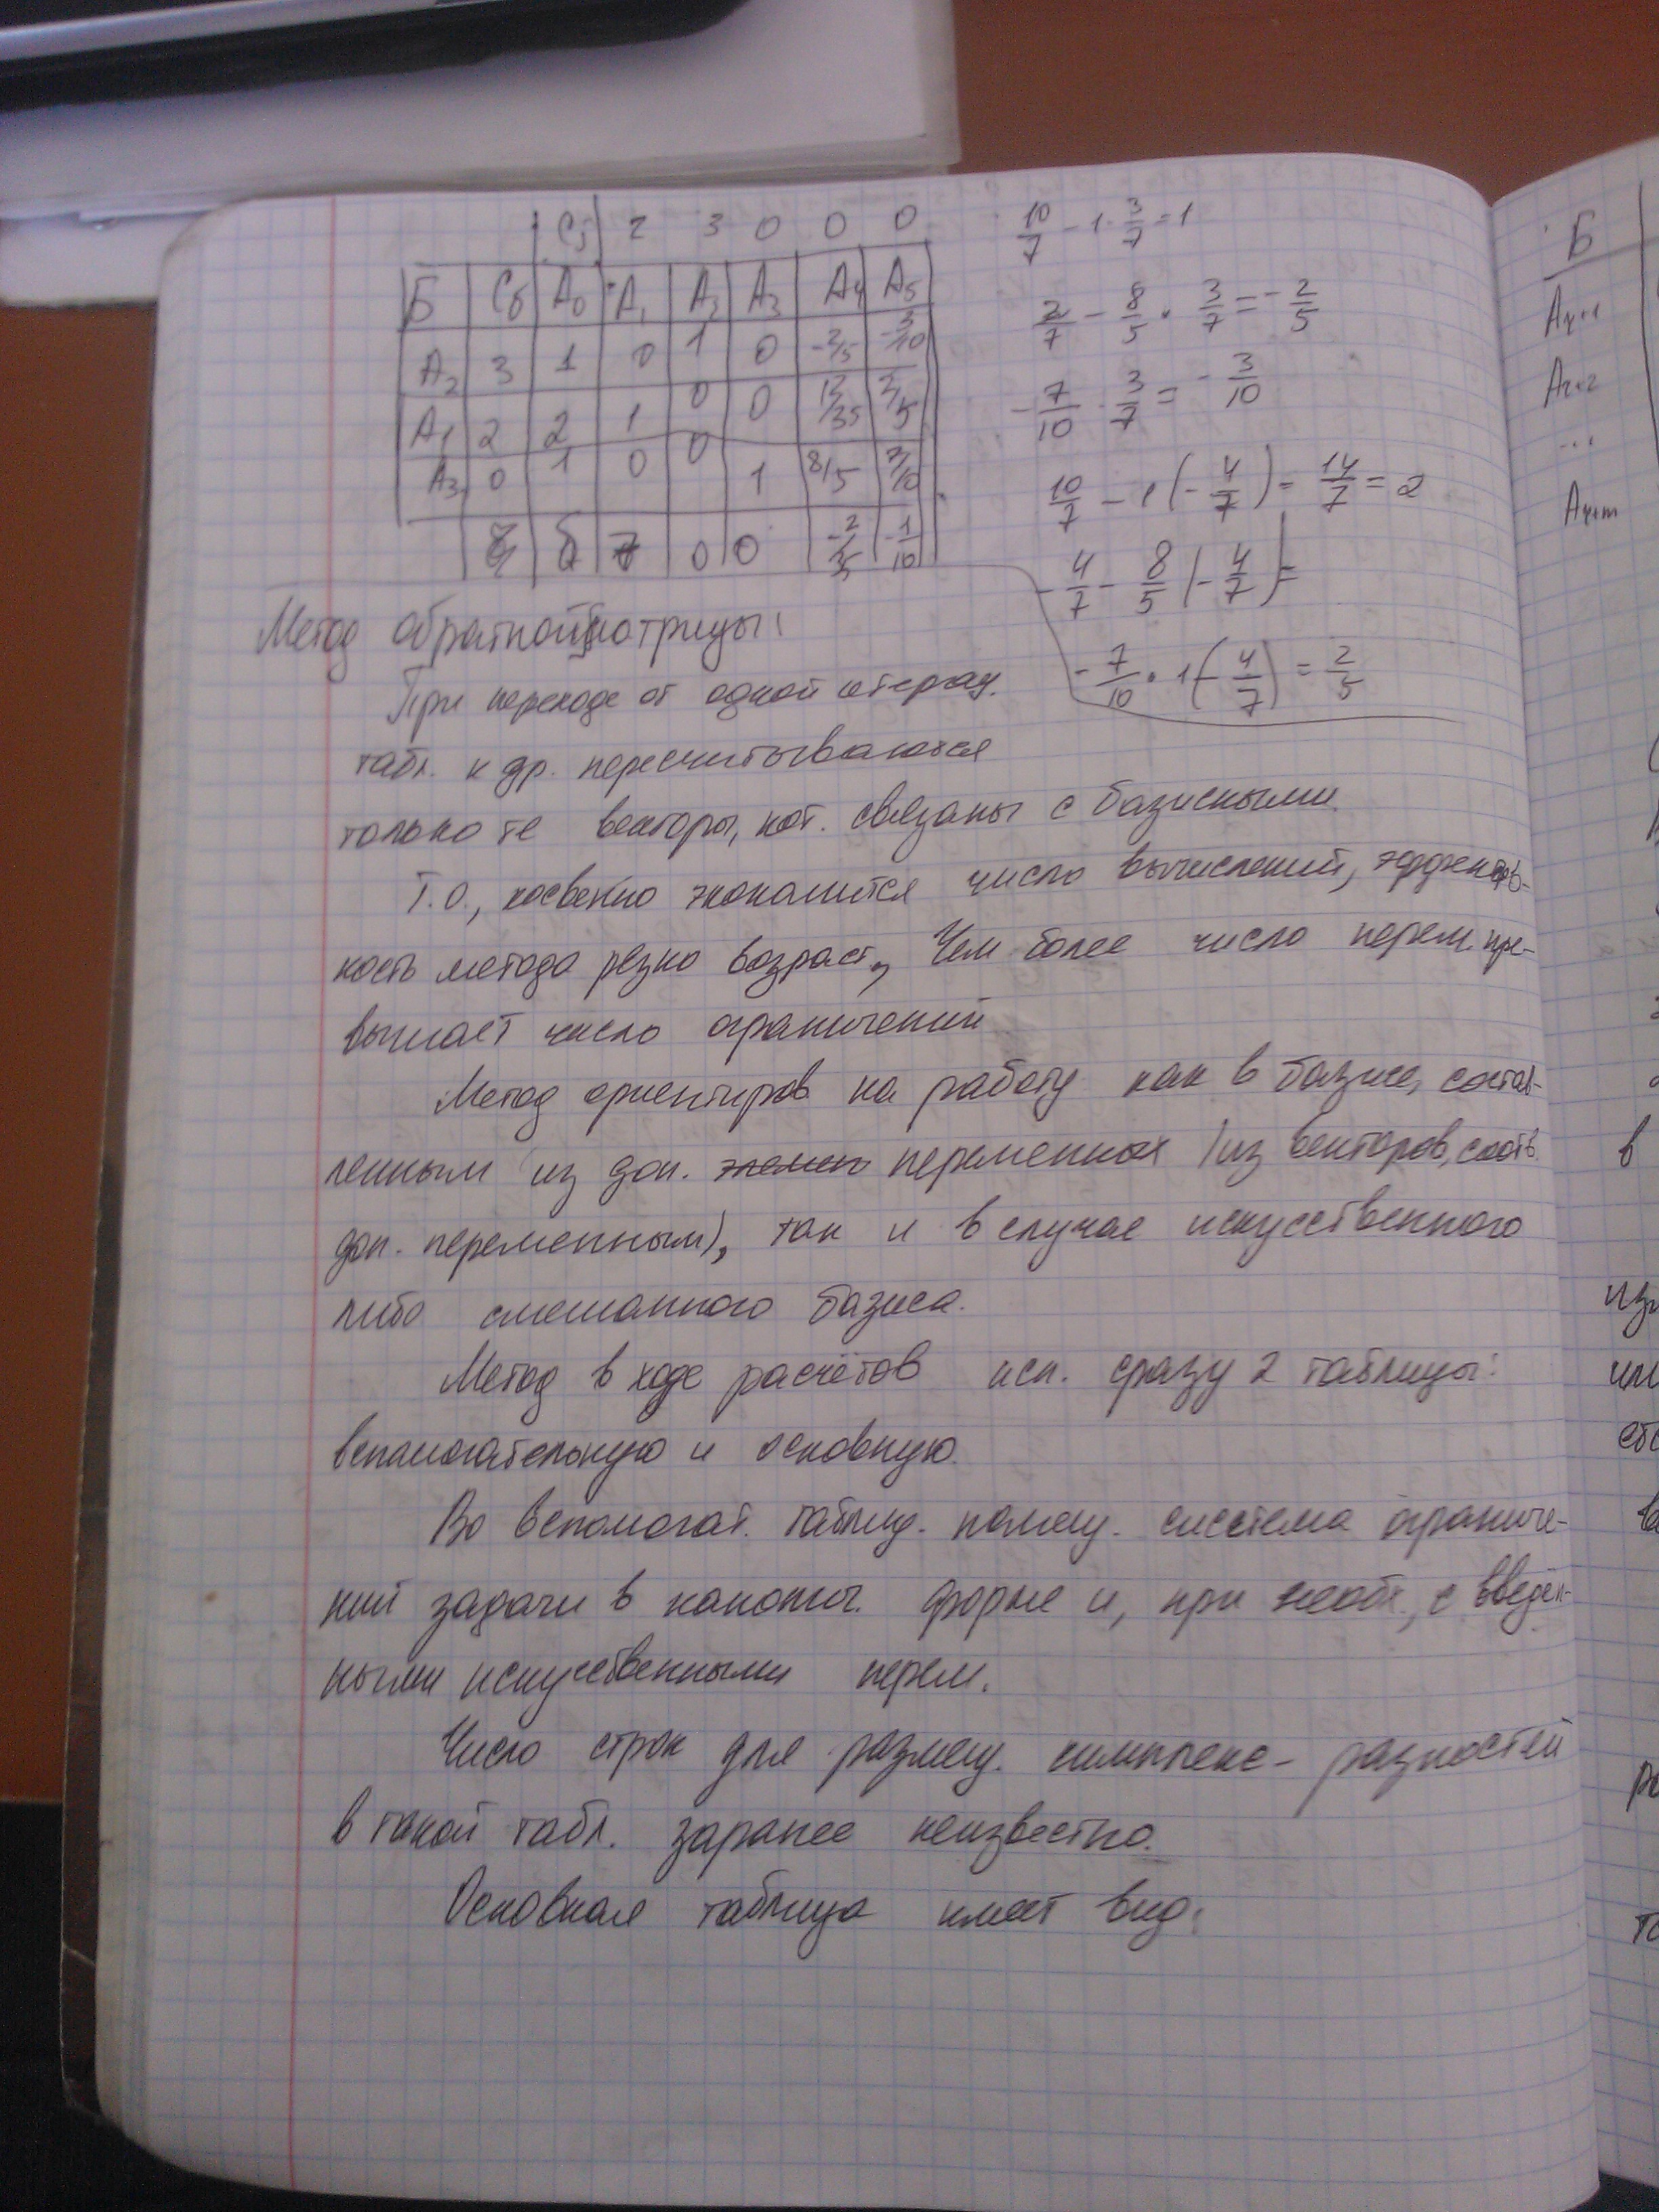 Cj 2 3 0 0 0
Б Сб A0 A1 A2 A3 A4 A5
A2 3 1 0 1 0 -2/5 -3/10
A1 2 2 1 0 0 12/35 2/5
A3 0 1 0 0 1 8/5 7/10
0 0 -1/10
10/7 - 1 · 3/7 = 1
2/7 - 8/5 · 3/7 = -2/5
-7/10 · 3/7 = -3/10
10/7 - 1(-4/7) = 14/7 = 2
-4/7 - 8/5(-4/7) =
-7/10 · 1(-4/7) = 2/5
Метод обратной матрицы:
При переходе от одной итерац.
табл. к др. пересчитываются
только те векторы, кот. связаны с базисными.
Т.О., косвенно экономится число вычислений, эффектив-
ность метода резко возраст, чем более число перем. пре-
вышает число ограничений
Метод ориентиров на работу как в базисе, состав-
ленным из доп. элемен переменных (из векторов, соотв.
доп. переменным), так и в случае искусственного
либо смешанного базиса.
Метод в ходе расчётов исп. сразу 2 таблицы:
вспомогательную и основную.
Во вспомогат. таблиц. помещ. система ограниче-
ний задачи в канонич. форме и, при необх., с введён-
ными искуственными перем.
Число строк для размещ. симплекс-разностей
в такой табл. заранее неизвестно.
Основная таблица имеет вид:
Б
Aч+1
Aч+2
...
Aч+m
в